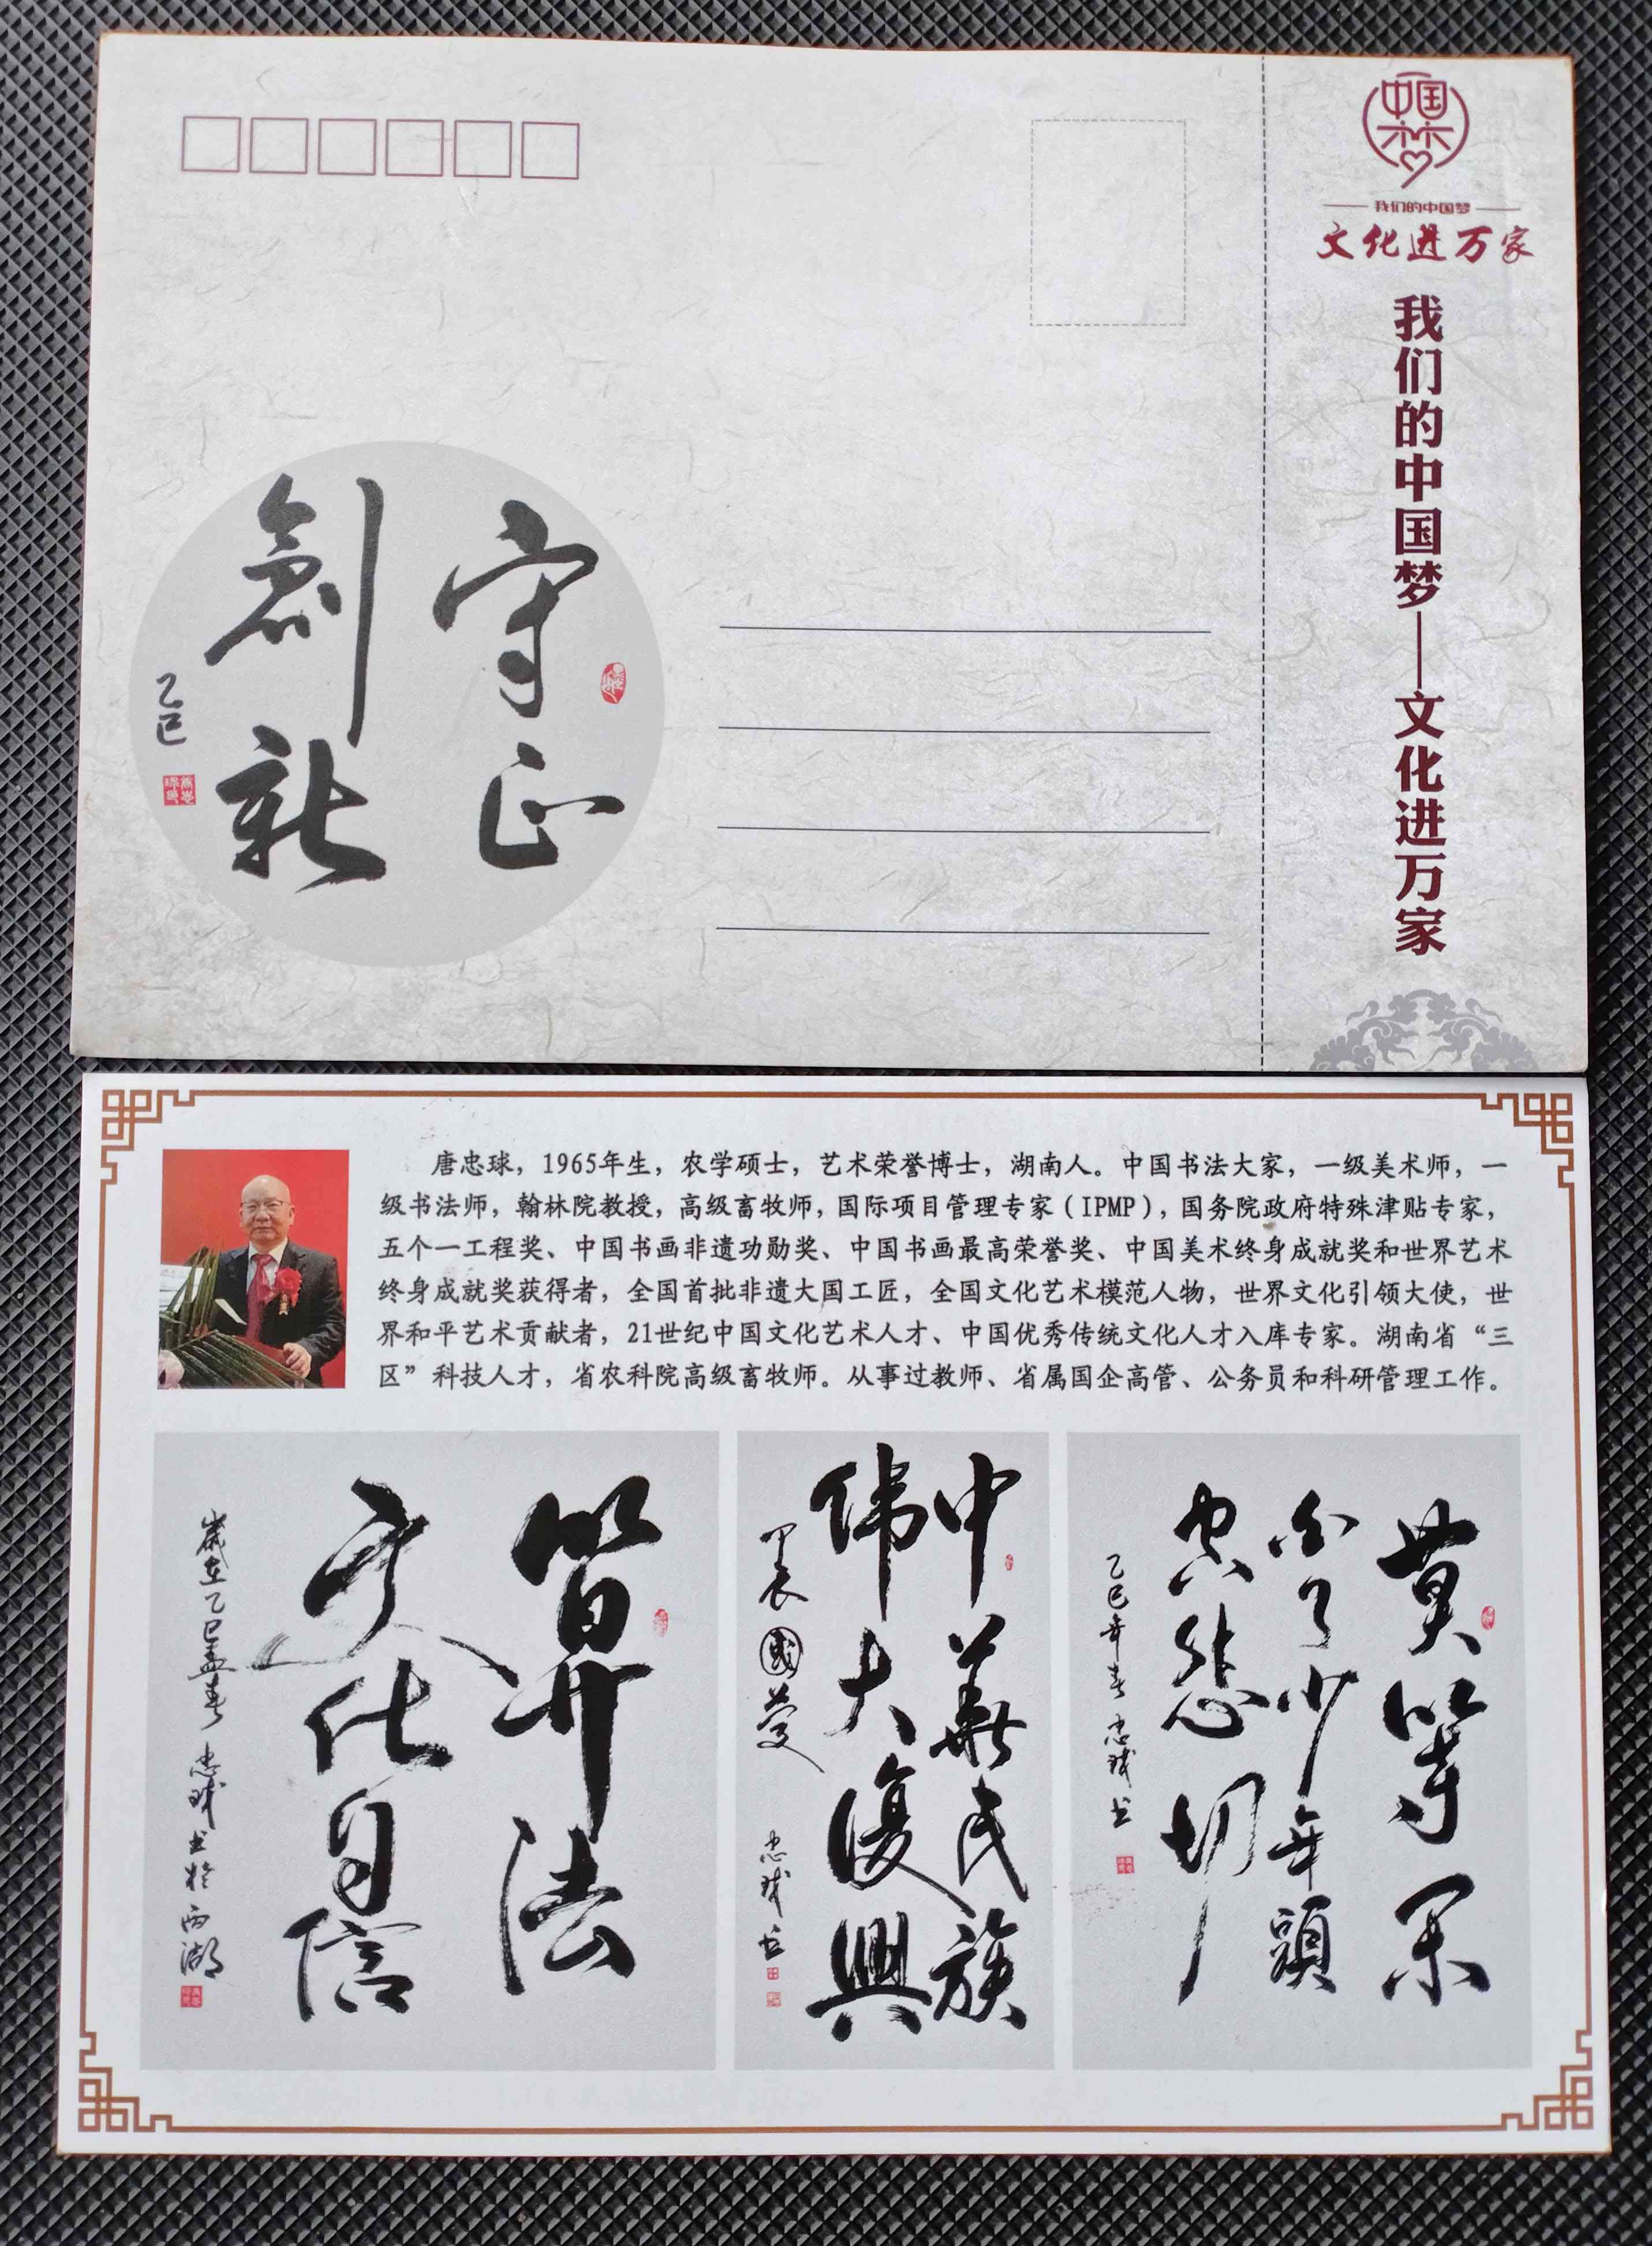 中国梦
我们的中国梦
文化进万家
我们的中国梦——文化进万家
守正
創新
乙巳
唐忠球，1965年生，农学硕士，艺术荣誉博士，湖南人。中国书法大家，一级美术师，一
级书法师，翰林院教授，高级畜牧师，国际项目管理专家（IPMP），国务院政府特殊津贴专家，
五个一工程奖、中国书画非遗功勋奖、中国书画最高荣誉奖、中国美术终身成就奖和世界艺术
终身成就奖获得者，全国首批非遗大国工匠，全国文化艺术模范人物，世界文化引领大使，世
界和平艺术贡献者，21世纪中国文化艺术人才、中国优秀传统文化人才入库专家。湖南省“三
区”科技人才，省农科院高级畜牧师。从事过教师、省属国企高管、公务员和科研管理工作。
算法
文化自信
歲在乙巳孟春 忠球书於西湖
中華民族
偉大復興
甲辰國夢 忠球书
莫等闲
白了少年頭
空悲切
乙巳年春 忠球书